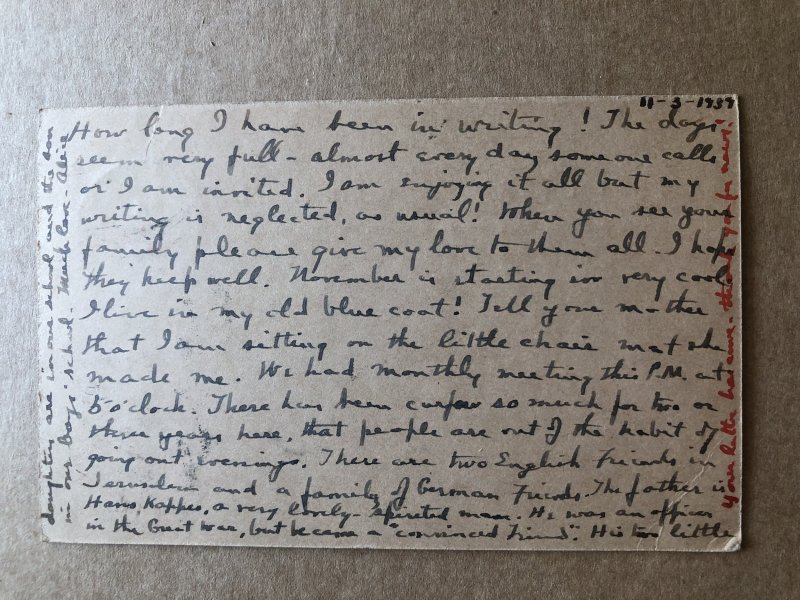 11-3-1939
How long I have been in writing! The days
seem very full - almost every day someone calls
or I am invited. I am enjoying it all but my
writing is neglected, as usual! When you see your
family please give my love to them all. I hope
they keep well. November is starting in very cool
I live in my old blue coat! Tell your mother
that I am sitting on the little chair mat she
made me. We had monthly meeting this P.M. at
5 o'clock. There has been curfew so much for two or
three years here, that people are out of the habit of
going out evenings. There are two English Friends in
Jerusalem and a family of German Friends. The father is
Hans, Kappes, a very lovely-spirited man. He was an officer
in the Great War, but became a "convinced Friend". His two little
daughters are in our school and the son
in our Boys' School. Much love - Alice
Your letter has come - thank you for news!